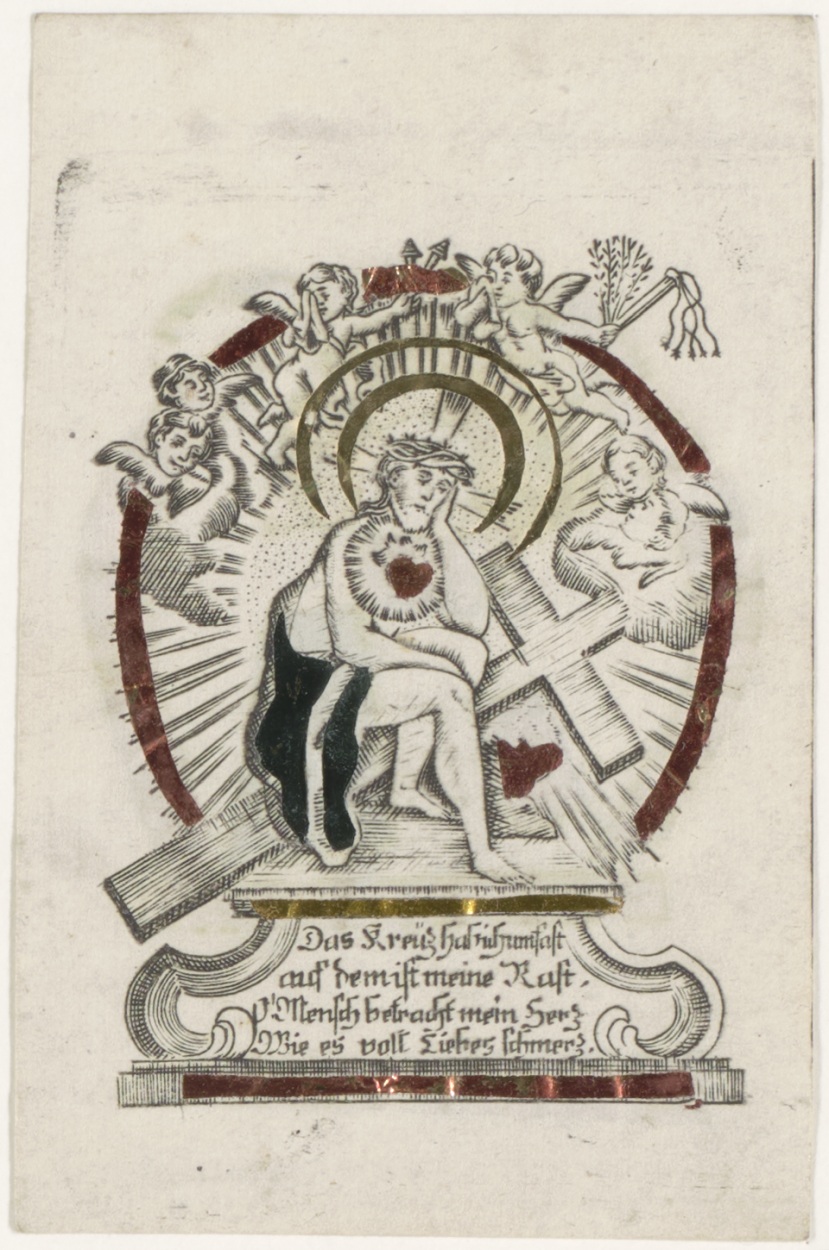 Das Kreüz hab ich umfast
auf dem ist meine Rast.
O Mensch betracht mein Herz
Wie es voll Liebes schmerz.